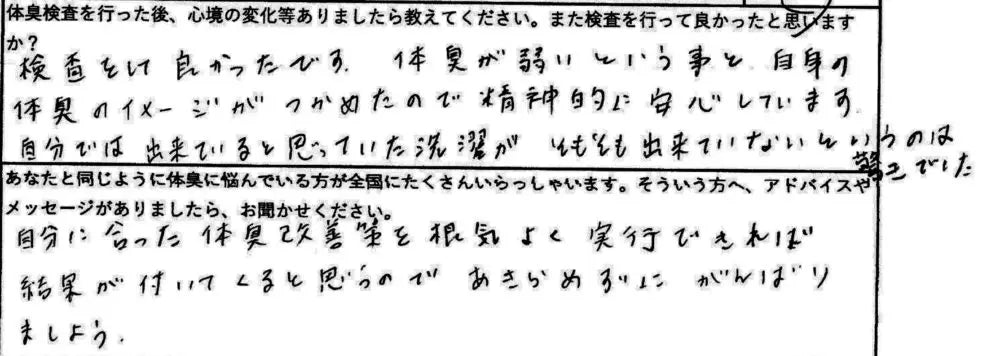 体臭検査を行った後、心境の変化等ありましたら教えてください。また検査を行って良かったと思います
か?
検査をして良かったです。体臭が弱いという事と自身の
体臭のイメージがつかめたので精神的に安心しています。
自分では出来ていると思っていた洗濯がそもそも出来ていないというのは
驚きでした
あなたと同じように体臭に悩んでいる方が全国にたくさんいらっしゃいます。そういう方へ、アドバイスや
メッセージがありましたら、お聞かせください。
自分に合った体臭改善策を根気よく実行できれば
結果が付いてくると思うのであきらめずにがんばり
ましょう.